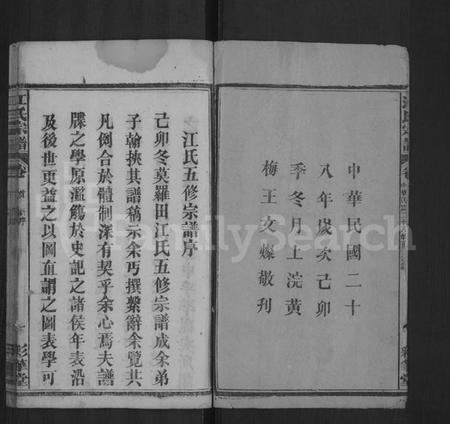 中華民國二十
八年歲次己卯
季冬月上浣黃
梅王文燦敬刋
江氏五修宗譜序
己卯冬莫羅田江氏五修宗譜成余弟
子翰挾其譜稿示余丐撰繫辭余覽其
凡例合於體制深有契乎余心焉夫譜
牒之學原濫觴於史記之諸侯年表沿
及後世更益之以圖直謂之圖表學可
江氏宗譜
卷
彩華堂
FamilySearch